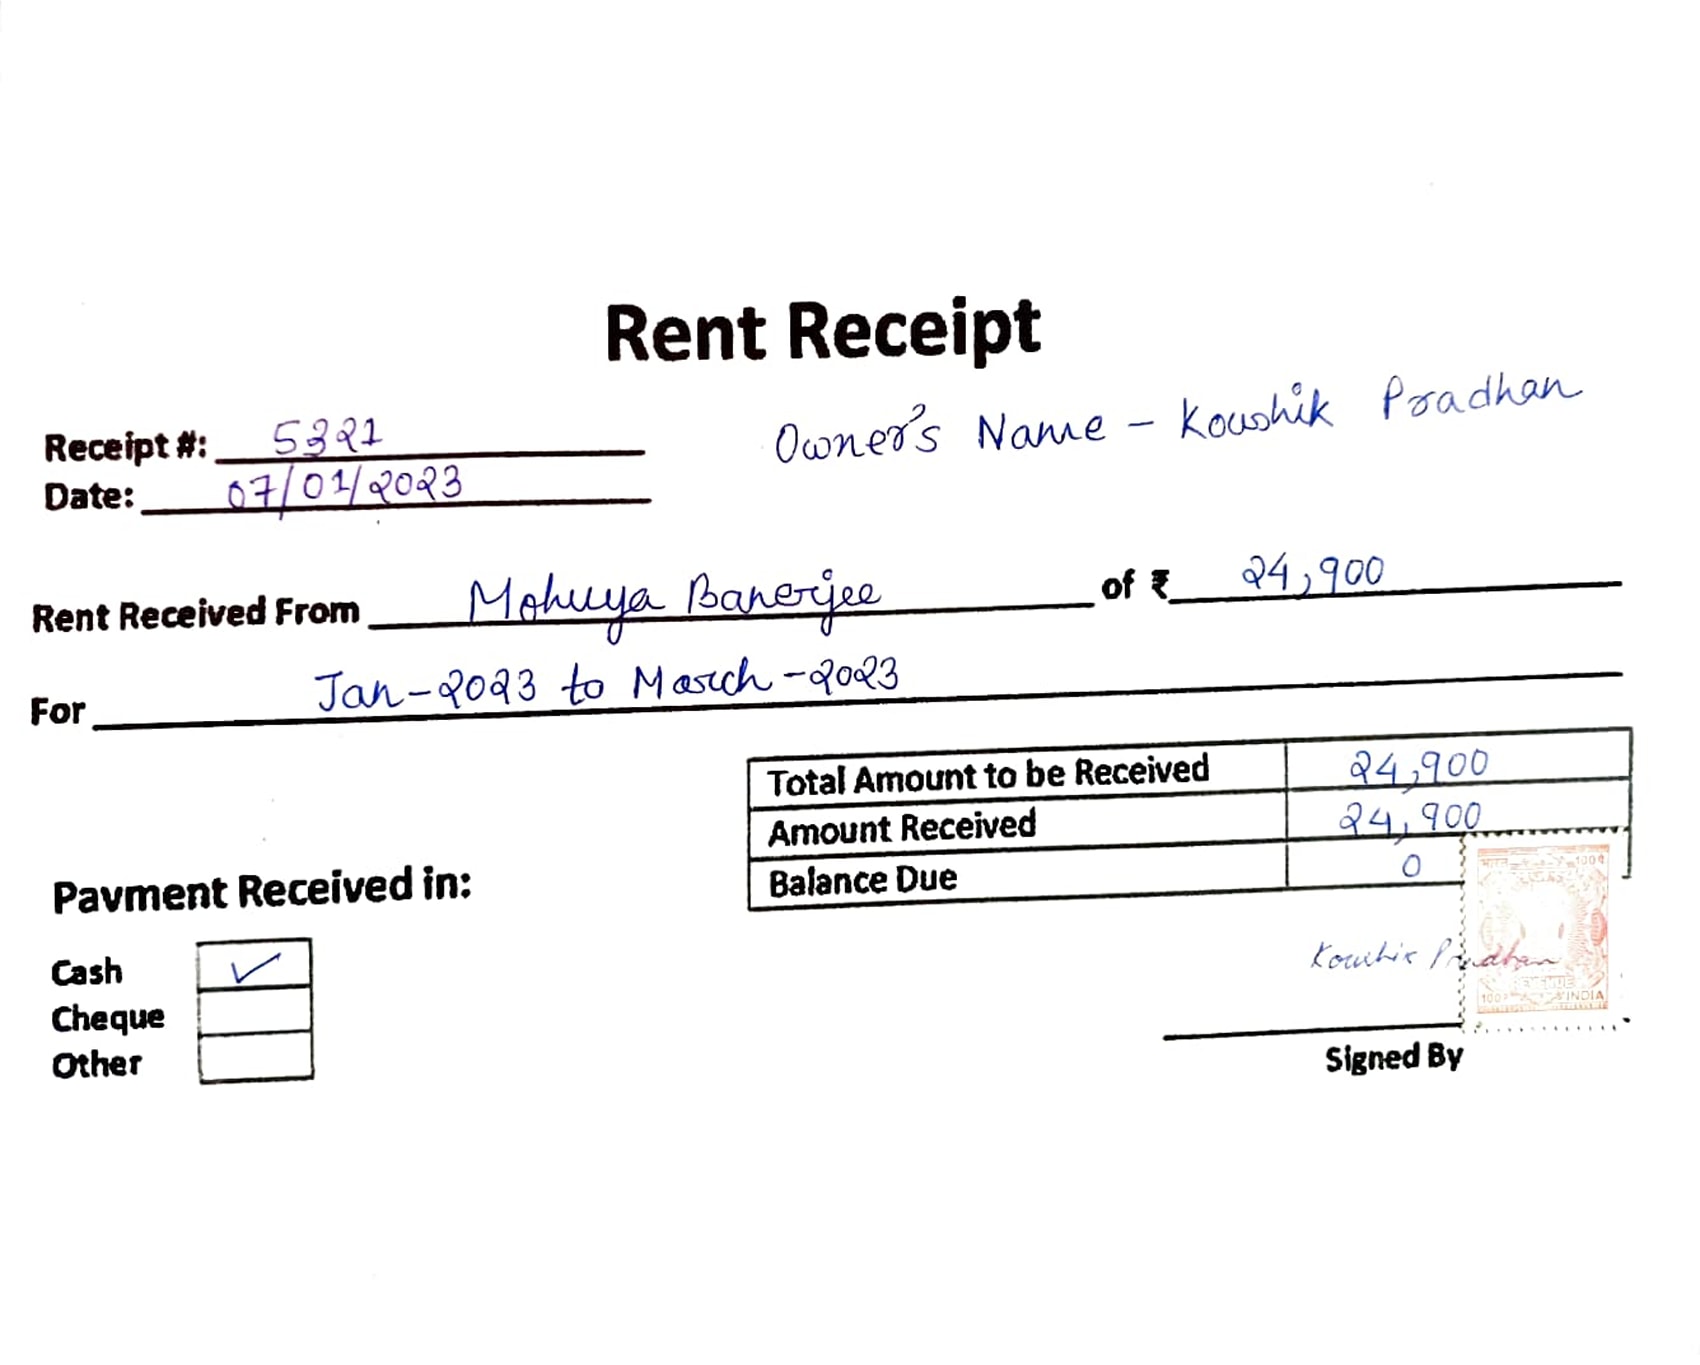 Rent Receipt
Owner's Name - Koushik Pradhan
Receipt #: 5321
Date: 07/01/2023
Rent Received From Mohuya Banerjee of ₹ 24,900
For Jan-2023 to March-2023
Total Amount to be Received 24,900
Amount Received 24,900
Balance Due 0
Pavment Received in:
Cash ✓
Cheque
Other
Koushik Pradhan
INDIA
Signed By